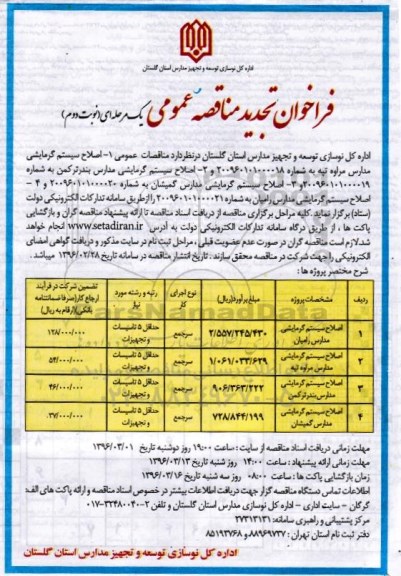 اداره کل نوسازی توسعه و تجهیز مدارس استان گلستان
فراخوان تجدید مناقصه عمومی یک مرحله ای (نوبت دوم)
اداره کل نوسازی توسعه و تجهیز مدارس استان گلستان درنظردارد مناقصات عمومی ۱- اصلاح سیستم گرمایشی
مدارس مراوه تپه به شماره ۲۰۰۹۶۰۱۰۱۰۰۰۰۱۸ و ۲- اصلاح سیستم گرمایشی مدارس بندرترکمن به شماره
۲۰۰۹۶۰۱۰۱۰۰۰۰۱۹و ۳- اصلاح سیستم گرمایشی مدارس گمیشان به شماره ۲۰۰۹۶۰۱۰۱۰۰۰۰۲۰ و ۴ -
اصلاح سیستم گرمایشی مدارس رامیان به شماره ۲۰۰۹۶۰۱۰۱۰۰۰۰۲۱ را ازطریق سامانه تدارکات الکترونیکی دولت
(ستاد) برگزار نماید .کلیه مراحل برگزاری مناقصه از دریافت اسناد مناقصه تا ارائه پیشنهاد مناقصه گران و بازگشایی
پاکت ها ، از طریق درگاه سامانه تدارکات الکترونیکی دولت به آدرس www.setadiran.ir انجام خواهد
شدلازم است مناقصه گران در صورت عدم عضویت قبلی ، مراحل ثبت نام در سایت مذکور و دریافت گواهی امضای
الکترونیکی را جهت شرکت در مناقصه محقق سازند . تاریخ انتشار مناقصه در سامانه تاریخ ۱۳۹۶/۰۲/۲۸ میباشد.
شرح مختصر پروژه ها :
ردیف مشخصات پروژه مبلغ برآورد(ریال) نوع اجرای کار رتبه و رشته مورد نیاز تضمین شرکت در فرآیند ارجاع کار(صرفا ضمانتنامه بانکی)(ارقام به ریال)
۱ اصلاح سیستم گرمایشی مدارس رامیان ۲/۵۵۷/۲۴۵/۴۳۰ سرجمع حداقل ۵ تاسیسات و تجهیزات ۱۲۸/۰۰۰/۰۰۰
۲ اصلاح سیستم گرمایشی مدارس مراوه تپه ۱/۰۶۱/۰۳۳/۶۲۹ سرجمع حداقل ۵ تاسیسات و تجهیزات ۵۴/۰۰۰/۰۰۰
۳ اصلاح سیستم گرمایشی مدارس بندرترکمن ۹۰۶/۳۶۳/۲۲۲ سرجمع حداقل ۵ تاسیسات و تجهیزات ۴۶/۰۰۰/۰۰۰
۴ اصلاح سیستم گرمایشی مدارس گمیشان ۷۲۸/۸۴۴/۱۹۹ سرجمع حداقل ۵ تاسیسات و تجهیزات ۳۷/۰۰۰/۰۰۰
مهلت زمانی دریافت اسناد مناقصه از سایت : ساعت ۱۹:۰۰ روز دوشنبه تاریخ ۱۳۹۶/۰۳/۰۱
مهلت زمانی ارائه پیشنهاد : ساعت ۱۴:۰۰ روز شنبه تاریخ ۱۳۹۶/۰۳/۱۳
زمان بازگشایی پاکت ها : ساعت ۰۸:۰۰ روز سه شنبه تاریخ ۱۳۹۶/۰۳/۱۶
اطلاعات تماس دستگاه مناقصه گزار جهت دریافت اطلاعات بیشتر در خصوص اسناد مناقصه و ارائه پاکت های الف:
گرگان - سایت اداری - اداره کل نوسازی مدارس استان گلستان و تلفن ۲-۳۲۴۸۰۰۴۰-۰۱۷
مرکز پشتیبانی و راهبری سامانه: ۲۷۳۱۳۱۳۱
دفتر ثبت نام استان تهران : ۸۸۹۶۹۷۳۷ و ۸۵۱۹۳۷۶۸
اداره کل نوسازی توسعه و تجهیز مدارس استان گلستان